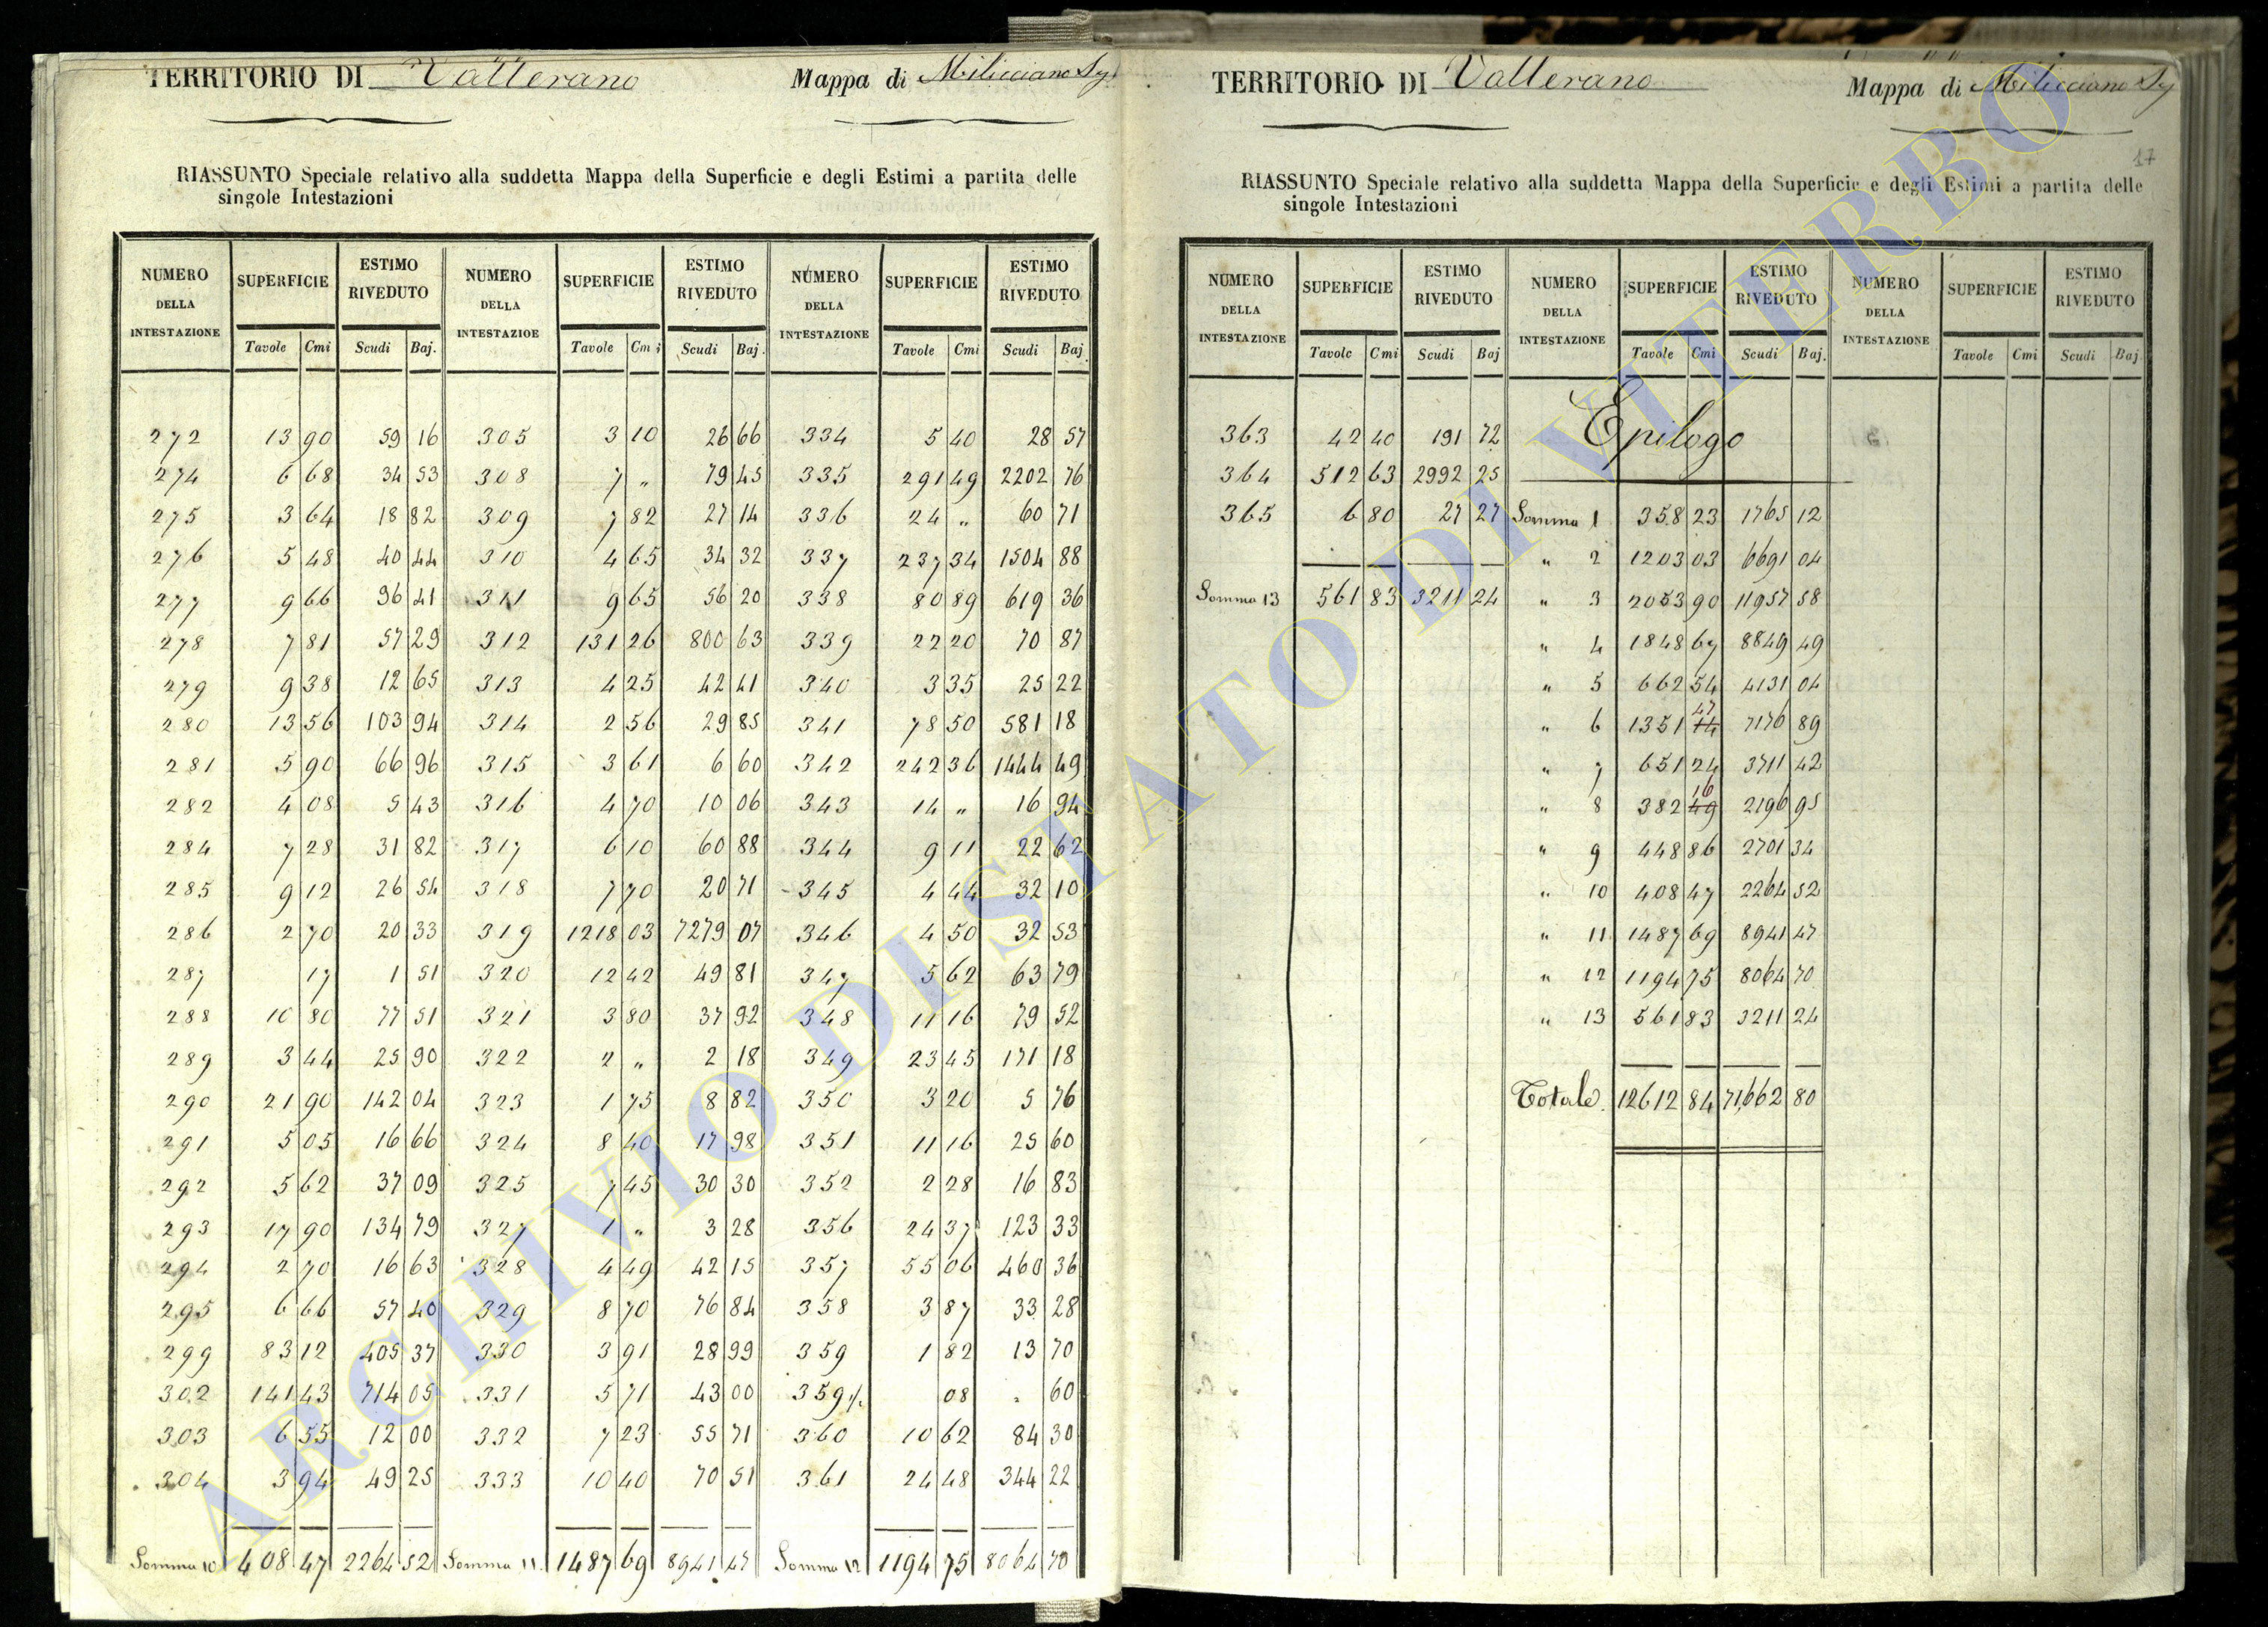 TERRITORIO DI Vallerano Mappa di Milicciano Sy
RIASSUNTO Speciale relativo alla suddetta Mappa della Superficie e degli Estimi a partita delle
singole Intestazioni
NUMERO DELLA INTESTAZIONE SUPERFICIE ESTIMO RIVEDUTO NUMERO DELLA INTESTAZIOE SUPERFICIE ESTIMO RIVEDUTO NUMERO DELLA INTESTAZIONE SUPERFICIE ESTIMO RIVEDUTO
Tavole Cmi Scudi Baj. Tavole Cmi Scudi Baj. Tavole Cmi Scudi Baj.
272 13 90 59 16 305 3 10 26 66 334 5 40 28 57
274 6 68 34 53 308 7 " 79 45 335 291 49 2202 76
275 3 64 18 82 309 7 82 27 14 336 24 " 60 71
276 5 48 40 44 310 4 65 34 32 337 237 34 1504 88
277 9 66 96 41 311 9 65 56 20 338 80 89 619 36
278 7 81 57 29 312 131 26 800 63 339 22 20 70 87
279 9 38 12 65 313 4 25 42 41 340 3 35 25 22
280 13 56 103 94 314 2 56 29 85 341 78 50 581 18
281 5 90 66 96 315 3 61 6 60 342 242 36 1444 49
282 4 08 5 43 316 4 70 10 06 343 14 " 16 94
284 7 28 31 82 317 6 10 60 88 344 9 11 22 62
285 9 12 26 54 318 7 70 20 71 345 4 44 32 10
286 2 70 20 33 319 1218 03 7279 07 346 4 50 32 53
287 17 1 51 320 12 42 49 81 347 5 62 63 79
288 10 80 77 51 321 3 80 37 92 348 11 16 79 52
289 3 44 25 90 322 2 " 2 18 349 23 45 171 18
290 21 90 142 04 323 1 75 8 82 350 3 20 5 76
291 5 05 16 66 324 8 40 17 98 351 11 16 25 60
292 5 62 37 09 325 7 45 30 30 352 2 28 16 83
293 17 90 134 79 327 1 " 3 28 356 24 37 123 33
294 2 70 16 63 328 4 49 42 15 357 55 06 460 36
295 6 66 57 40 329 8 70 76 84 358 3 87 33 28
299 83 12 405 37 330 3 91 28 99 359 1 82 13 70
302 141 43 714 05 331 5 71 43 00 359 08 " 60
303 6 55 12 00 332 7 23 55 71 360 10 62 84 30
304 3 94 49 25 333 10 40 70 51 361 24 48 344 22
Somma 10 408 47 2264 52 Somma 11 1487 69 8941 47 Somma 12 1194 75 8064 70
TERRITORIO DI Vallerano Mappa di Milicciano Sy
17
RIASSUNTO Speciale relativo alla suddetta Mappa della Superficie e degli Estimi a partita delle
singole Intestazioni
NUMERO DELLA INTESTAZIONE SUPERFICIE ESTIMO RIVEDUTO NUMERO DELLA INTESTAZIONE SUPERFICIE ESTIMO RIVEDUTO NUMERO DELLA INTESTAZIONE SUPERFICIE ESTIMO RIVEDUTO
Tavole Cmi Scudi Baj Tavole Cmi Scudi Baj. Tavole Cmi Scudi Baj.
363 42 40 191 72 Epilogo
364 512 63 2992 25
365 6 80 27 27 Somma 1 358 23 1765 12
" 2 1203 03 6691 04
Somma 13 561 83 3211 24 " 3 2053 90 11957 58
" 4 1848 67 8849 49
" 5 662 54 4131 04
" 6 1351 44 47 7176 89
" 7 651 24 3711 42
" 8 382 49 16 2196 95
" 9 448 86 2701 34
" 10 408 47 2264 52
" 11 1487 69 8941 47
" 12 1194 75 8064 70
" 13 561 83 3211 24
Totale. 12612 84 71,662 80
ARCHIVIO DI STATO DI VITERBO